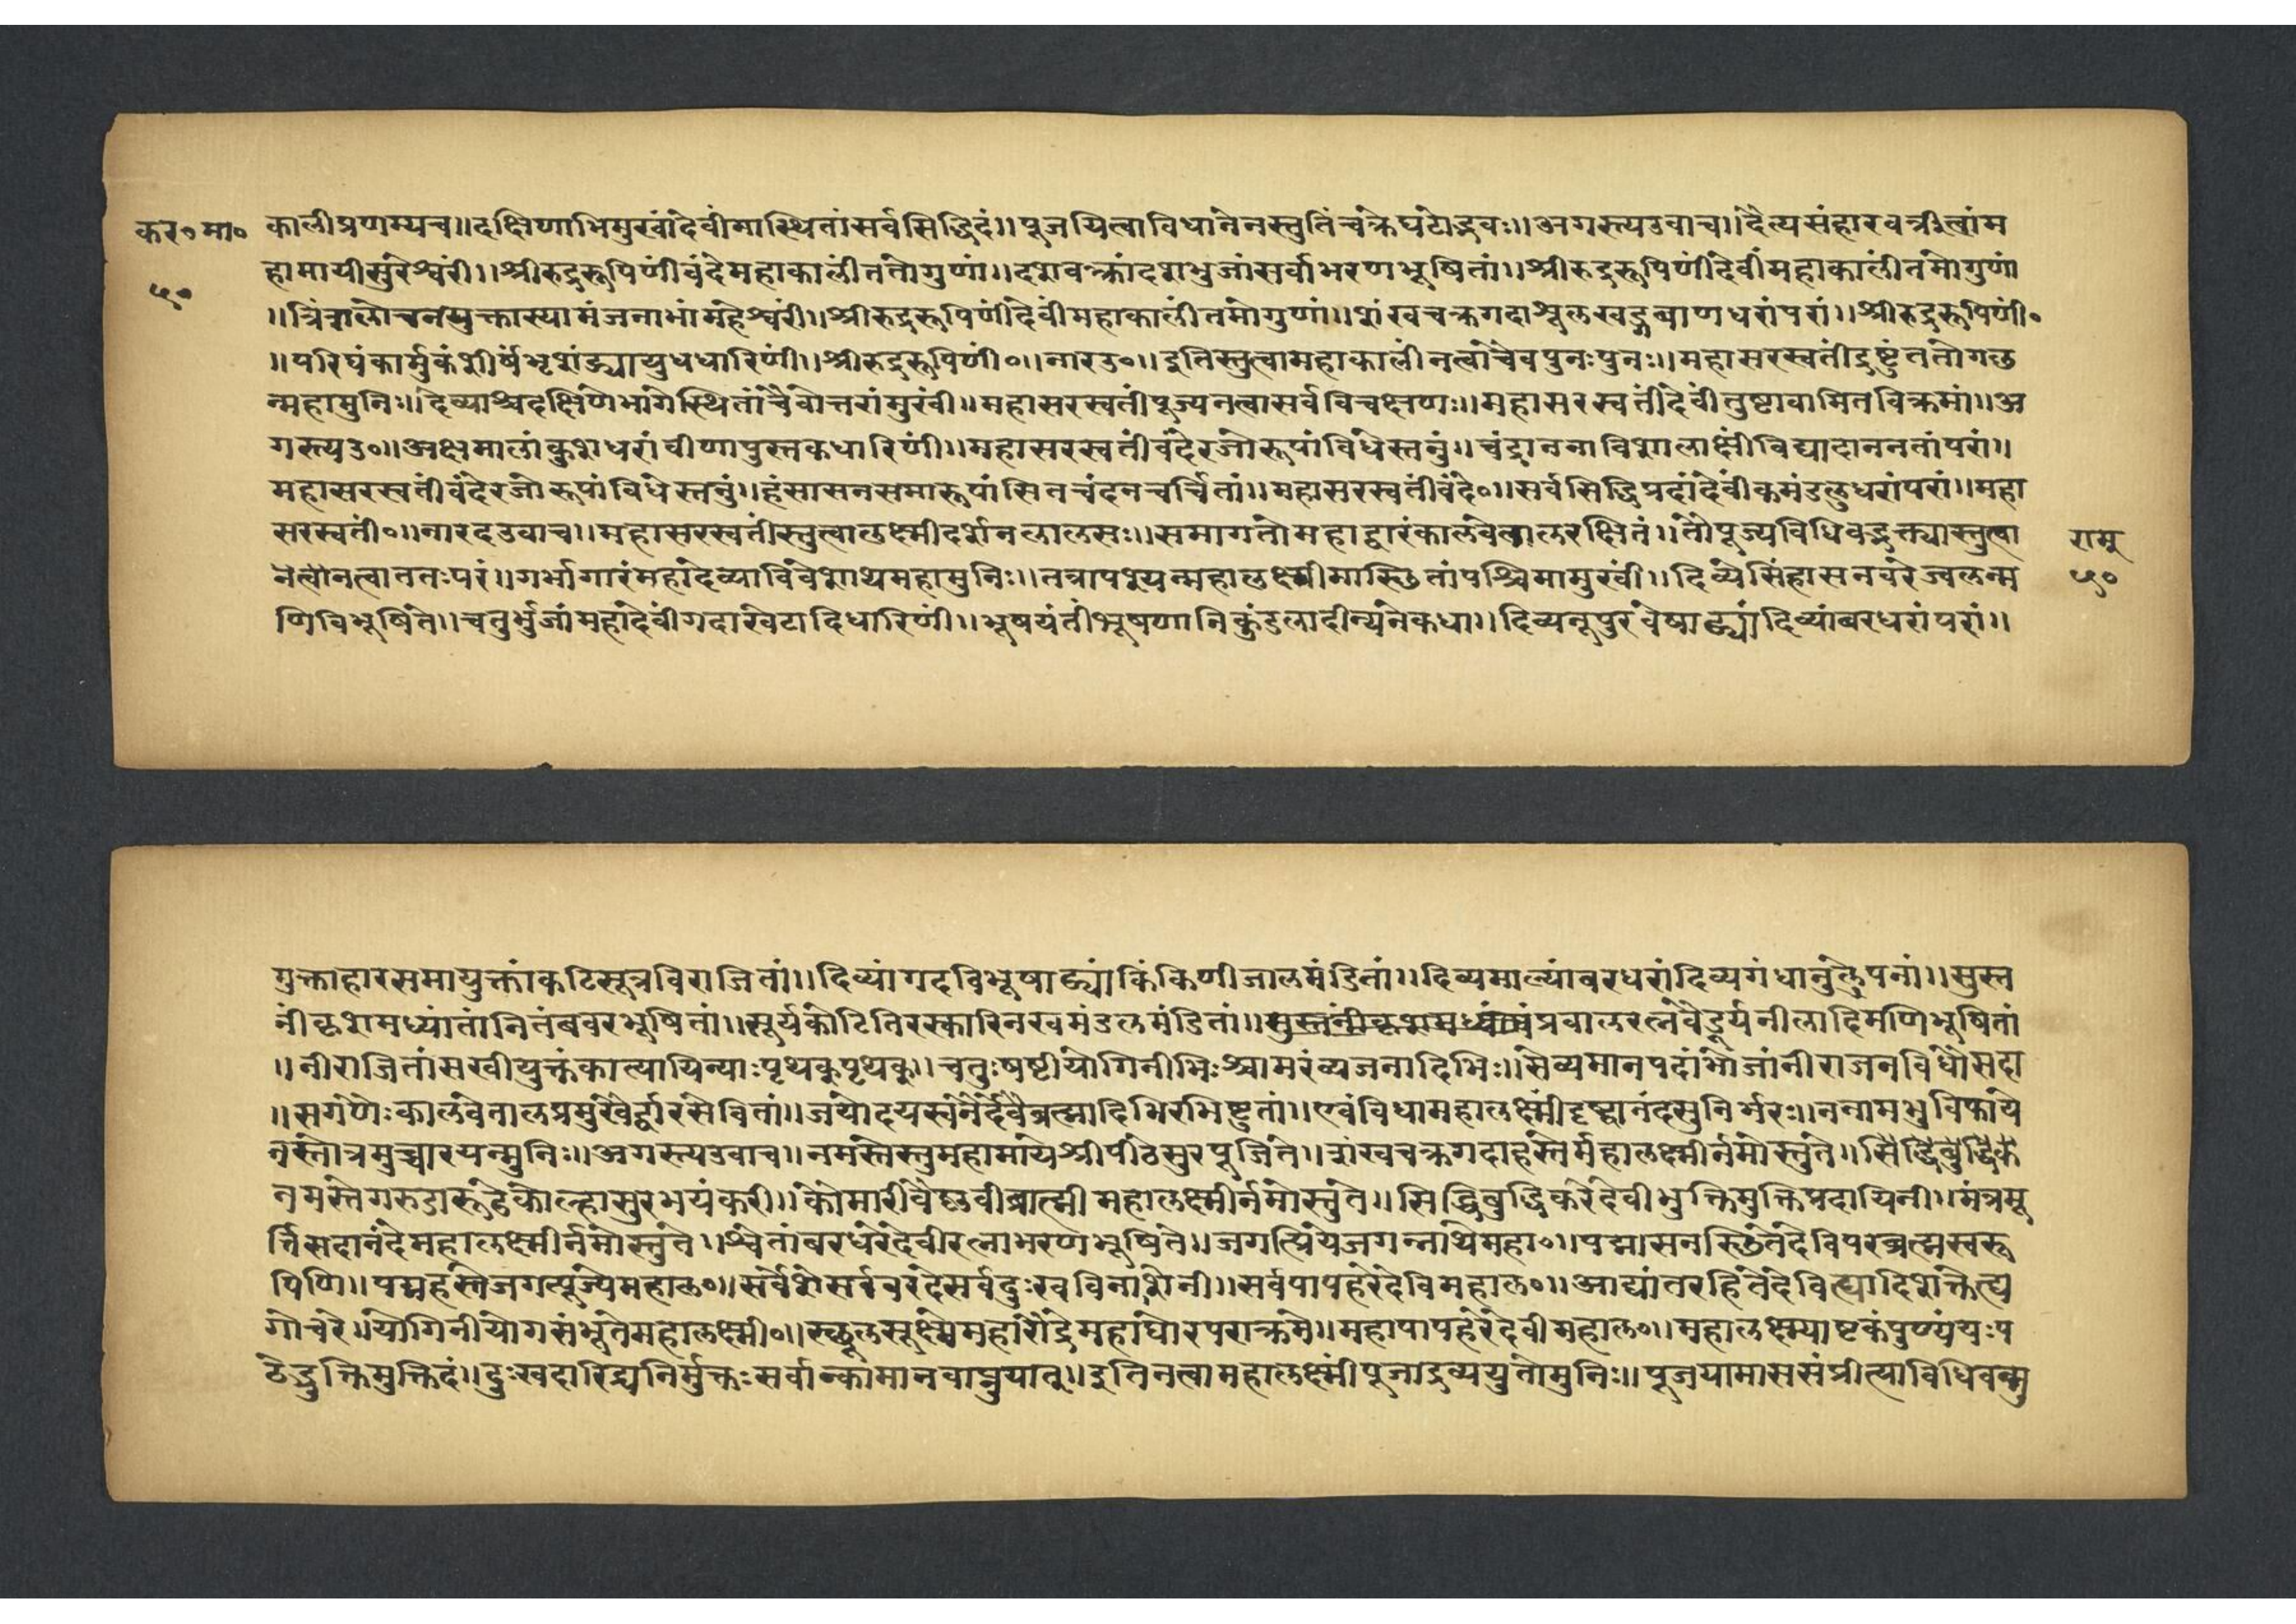 कर॰मा॰
५॰
कालीप्रणम्यच॥दक्षिणाभिमुखांदेवींमास्थितांसर्वसिद्धिदं॥पुजयित्वाविधानेनस्तुतिंचक्रेघटोद्भवः॥अगस्त्यउवाच॥दैत्यसंहारवक्त्रीत्वांम
हामायीसुरेश्वरीं॥श्रीरुद्ररूपिणींवंदेमहाकालींततोगुणां॥दशवक्त्रांदशभुजांसर्वाभरणभूषितां॥श्रीरुद्ररूपिणींदेवींमहाकालींतमोगुणां
॥त्रिंत्रालोचनसुक्तास्यामंजनाभांमहेश्वरीं॥श्रीरुद्ररूपिणींदेवींमहाकालींतमोगुणां॥शंखचक्रगदाशूलखड्गबाणधरांपरां॥श्रीरुद्ररूपिणीं॰
॥परिघंकार्मुकंशीर्षंभृशंड्यायुधधारिणीं॥श्रीरुद्ररूपिणीं॰॥नारउ॰॥इतिस्तुत्वामहाकालींनत्वाचैवपुनःपुनः॥महासरस्वतींद्रष्टुंततोगछ
न्महामुनिः॥देव्याश्चदक्षिणेभागेस्थितांचैवोत्तरांमुखीं॥महासरस्वतींपूज्यनत्वासर्वविचक्षणः॥महासरस्वतींदेवींतुष्टावामितविक्रमां॥अ
गस्त्यउ॰॥अक्षमालांकुशधरांवीणापुस्तकधारिणीं॥महासरस्वतींवंदेरजोरूपांविधेस्तनुं॥चंद्राननाविशालाक्षींविद्यादाननतांपरां॥
महासरस्वतींवंदेरजोरूपांविधेस्तनुं॥हंसासनसमारूपांसितचंदनचर्चितां॥महासरस्वतींवंदे॰॥सर्वसिद्धिप्रदांदेवींकमंडलुधरांपरां॥महा
सरस्वतीं॰॥नारदउवाच॥महासरस्वतींस्तुत्वालक्ष्मीदर्शनलालसः॥समागतोमहाद्वारंकालवेतालरक्षितं॥तौपूज्यविधिवद्भक्त्यास्तुत्वा
नेत्वोनत्वाततःपरं॥गर्भागारंमहादेव्याविवेशाथमहामुनिः॥तत्रापश्यन्महालक्ष्मीमास्छितांपश्चिमामुखीं॥दिव्येसिंहासनवरेज्वलन्म
णिविभूषिते॥चतुर्भुजांमहादेवींगदाखेटादिधारिणीं॥भूषयंतींभूषणानिकुंडलादीन्यनेकधा॥दिव्यनूपुरवेषाढ्यांदिव्यांबरधरांपरां॥
रामु
५०
मुक्ताहारसमायुक्तांकटिसूत्रविराजितां॥दिव्यांगदविभूषाढ्यांकिंकिणीजालमंडितां॥दिव्यमाल्यांबरधरांदिव्यगंधानुलेपनां॥सुस्त
नींकृशमध्यांतांनितंबवरभूषितां॥सूर्यकोटितिरस्कारिनखमंडलमंडितां॥प्रवालरत्नवैडूर्यनीलादिमणिभूषितां
॥नीराजितांसखीयुक्तंकात्यायिन्याःपृथक्पृथक्॥चतुःषष्टीयोगिनीभिःश्चामरंव्यजनादिभिः॥सेव्यमानपदांभोजांनीराजनविधौसदा
॥सगणैःकालवेतालप्रमुखैर्द्वारसेवितां॥जयोदयस्वनैर्देवैब्रह्मादिभिरभिष्टुतां॥एवंविधामहालक्ष्मींदृष्ट्वानंदसुनिर्भरः॥ननामभुविकाये
नस्तोत्रमुच्चारयन्मुनिः॥अगस्त्यउवाच॥नमस्तेस्तुमहामायेश्रीपीठेसुरपूजिते॥शंखचक्रगदाहस्तेर्महालक्ष्मीर्नमोस्तुते॥सिद्धिबुद्धिके
नमस्तेगरुडारूढेकोल्हासुरभयंकरी॥कौमारीवैष्णवीब्राह्मी महालक्ष्मीर्नमोस्तुते॥सिद्धिबुद्धिकरेदेवीभुक्तिमुक्तिप्रदायिनी॥मंत्रमू
र्त्तिसदानंदेमहालक्ष्मीर्नमोस्तुते॥श्वेतांबरधरेदेवीरत्नाभरणभूषिते॥जगत्प्रियेजगन्नाथेमहा॰॥पद्मासनस्छितेदेविपरब्रह्मस्वरू
पिणि॥पद्महस्तेजगत्पूज्येमहाल॰॥सर्वेशेसर्ववरदेसर्वदुःखविनाशेनी॥सर्वपापहरेदेविमहाल॰॥आद्यांतरहितेदेवित्यादिशक्तेत्य
गोचरे॥योगिनीयोगसंभूतेमहालक्ष्मी॰॥स्छूलसूक्ष्मेमहारौद्रेमहाघोरपराक्रमे॥महापापहरेदेवीमहाल॰॥महालक्ष्म्याष्टकंपुण्यंयःप
ठेद्भुक्तिमुक्तिदं॥दुःखदारिद्र्यनिर्मुक्तःसर्वान्कामानवाप्नुयात्॥इतिनत्वामहालक्ष्मींपूजाद्रव्ययुतोमुनिः॥पूजयामाससंप्रीत्याविधिवन्मु